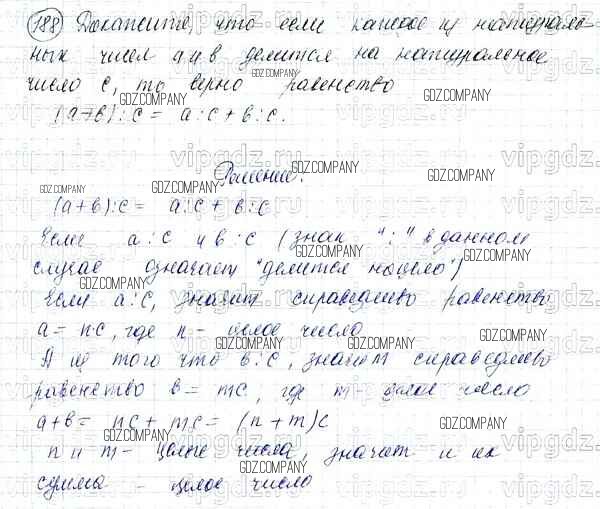 188 Докажите, что если каждое из натураль-
ных чисел a и b делится на натуральное
число c, то верно равенство
(a+b):c = a:c + b:c.
Решение:
(a+b):c = a:c + b:c
Если a:c и b:c (знак ":" в данном
случае означает "делится нацело")
Если a:c, значит справедливо равенство
a = nc, где n - целое число
А из того что b:c, значит справедливо
равенство b = mc, где m - целое число
a+b = nc + mc = (n+m)c
n и m - целые числа, значит и их
сумма - целое число